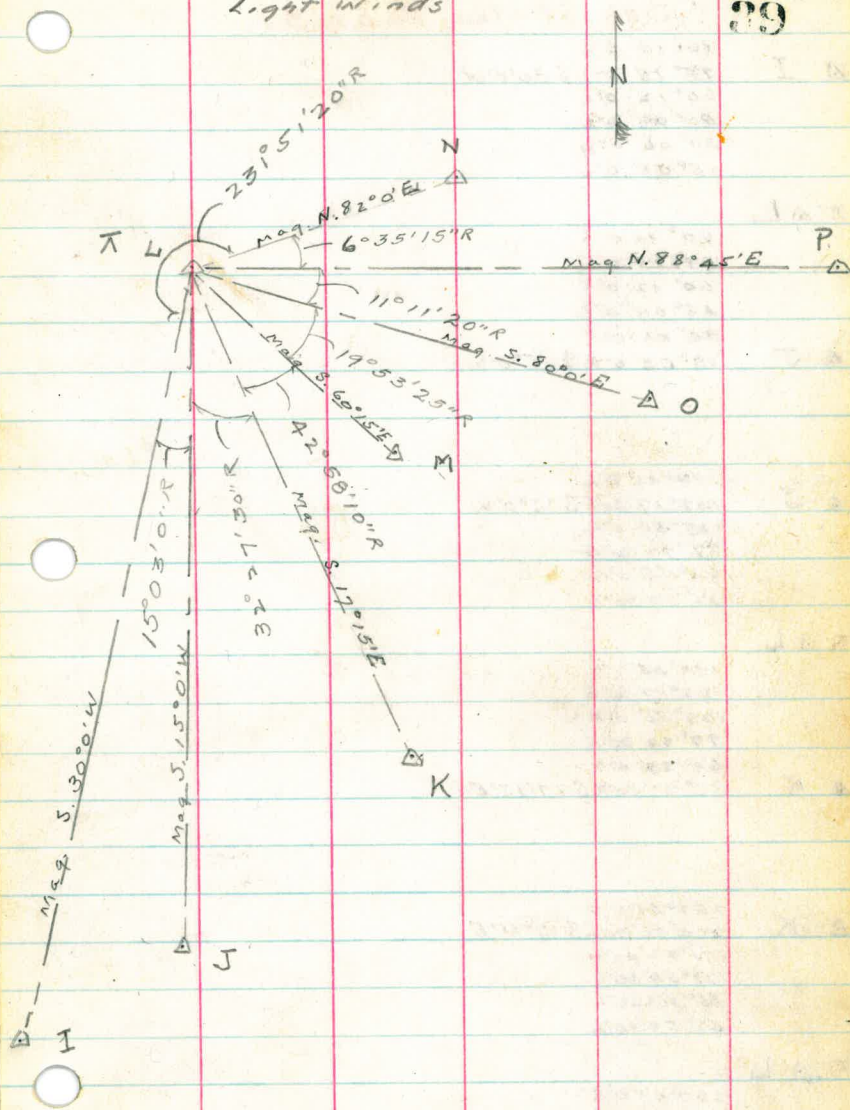 Light Winds
39
N
231°51'20"R
N
Mag. N.82°0'E
6°35'15"R
π L
P.
Mag N.88°45'E
11°11'20"R
Mag. S.80°0'E
O
19°53'25"R
Mag. S.60°15'E
M
42°58'10"R
32°27'30"R
15°03'0"R
Mag. S.17°15'E
K
Mag S.15°0'W
J
Mag S.30°0'W
I